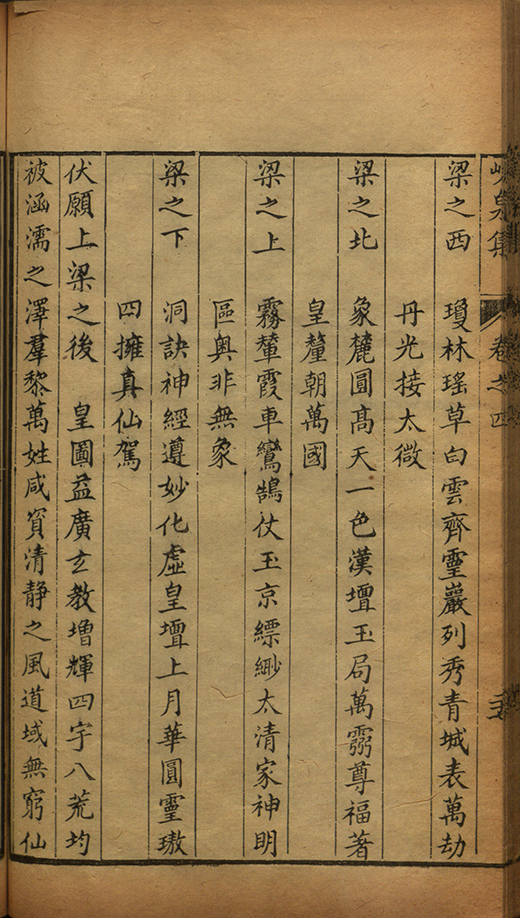 峴泉集 卷之四
梁之西 瓊林瑶草白雲齊靈巖列秀青城表萬劫
丹光接太微
梁之北 象麓圓髙天一色漢壇玉局萬靈尊福著
皇釐朝萬國
梁之上 霧輦霞車鸞鵠仗玉京縹緲太清家神明
區奥非無象
梁之下 洞訣神經遵妙化虛皇壇上月華圓靈璈
四擁真仙駕
伏願上梁之後 皇圖益廣玄教增輝四宇八荒均
被涵濡之澤羣黎萬姓咸資清静之風道域無窮仙